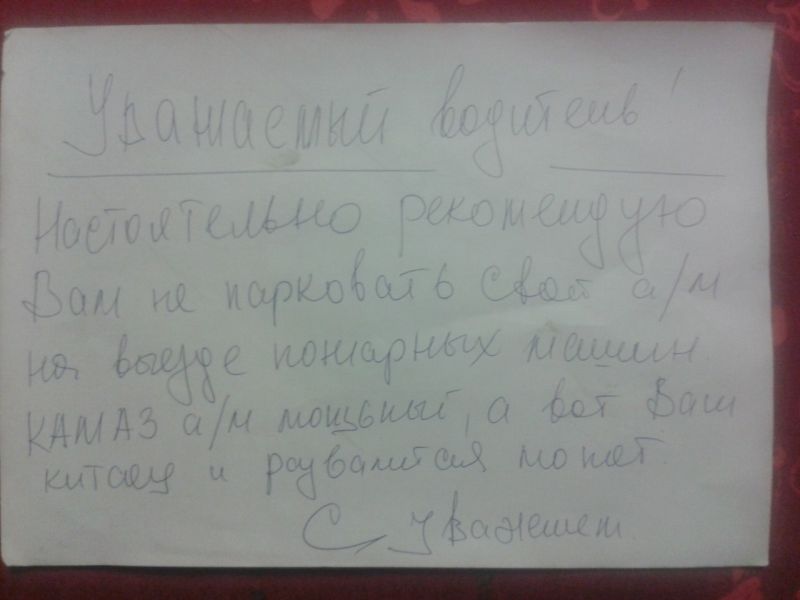 Уважаемый водитель!
Настоятельно рекомендую
Вам не парковать свой а/м
на выезде пожарных машин.
КАМАЗ а/м мощьный, а вот Ваш
китаец и развалится может.
С уважением.